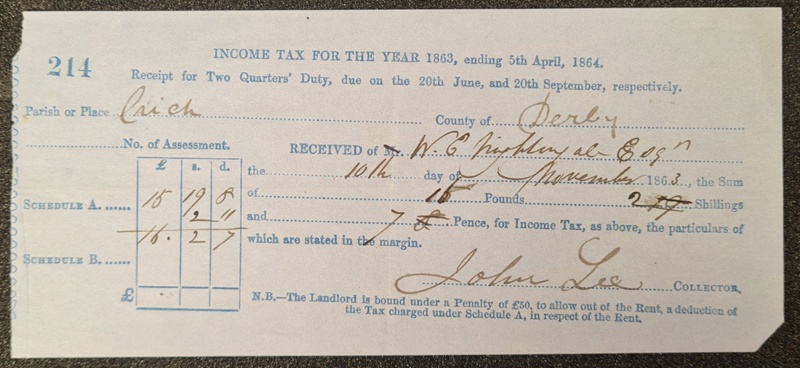 214
INCOME TAX FOR THE YEAR 1863, ending 5th April, 1864.
Receipt for Two Quarters' Duty, due on the 20th June, and 20th September, respectively.
Parish or Place Crich County of Derby
No. of Assessment.
RECEIVED of Mr. W. E Nightingale Esqr
the 10th day of November 1863, the Sum
of 16 Pounds 2 19 Shillings
and 7 8 Pence, for Income Tax, as above, the particulars of
which are stated in the margin.
£ s. d.
SCHEDULE A. 15 19 8
2 11
16. 2 7
SCHEDULE B.
£
John Lee COLLECTOR.
N.B.—The Landlord is bound under a Penalty of £50, to allow out of the Rent, a deduction of
the Tax charged under Schedule A, in respect of the Rent.